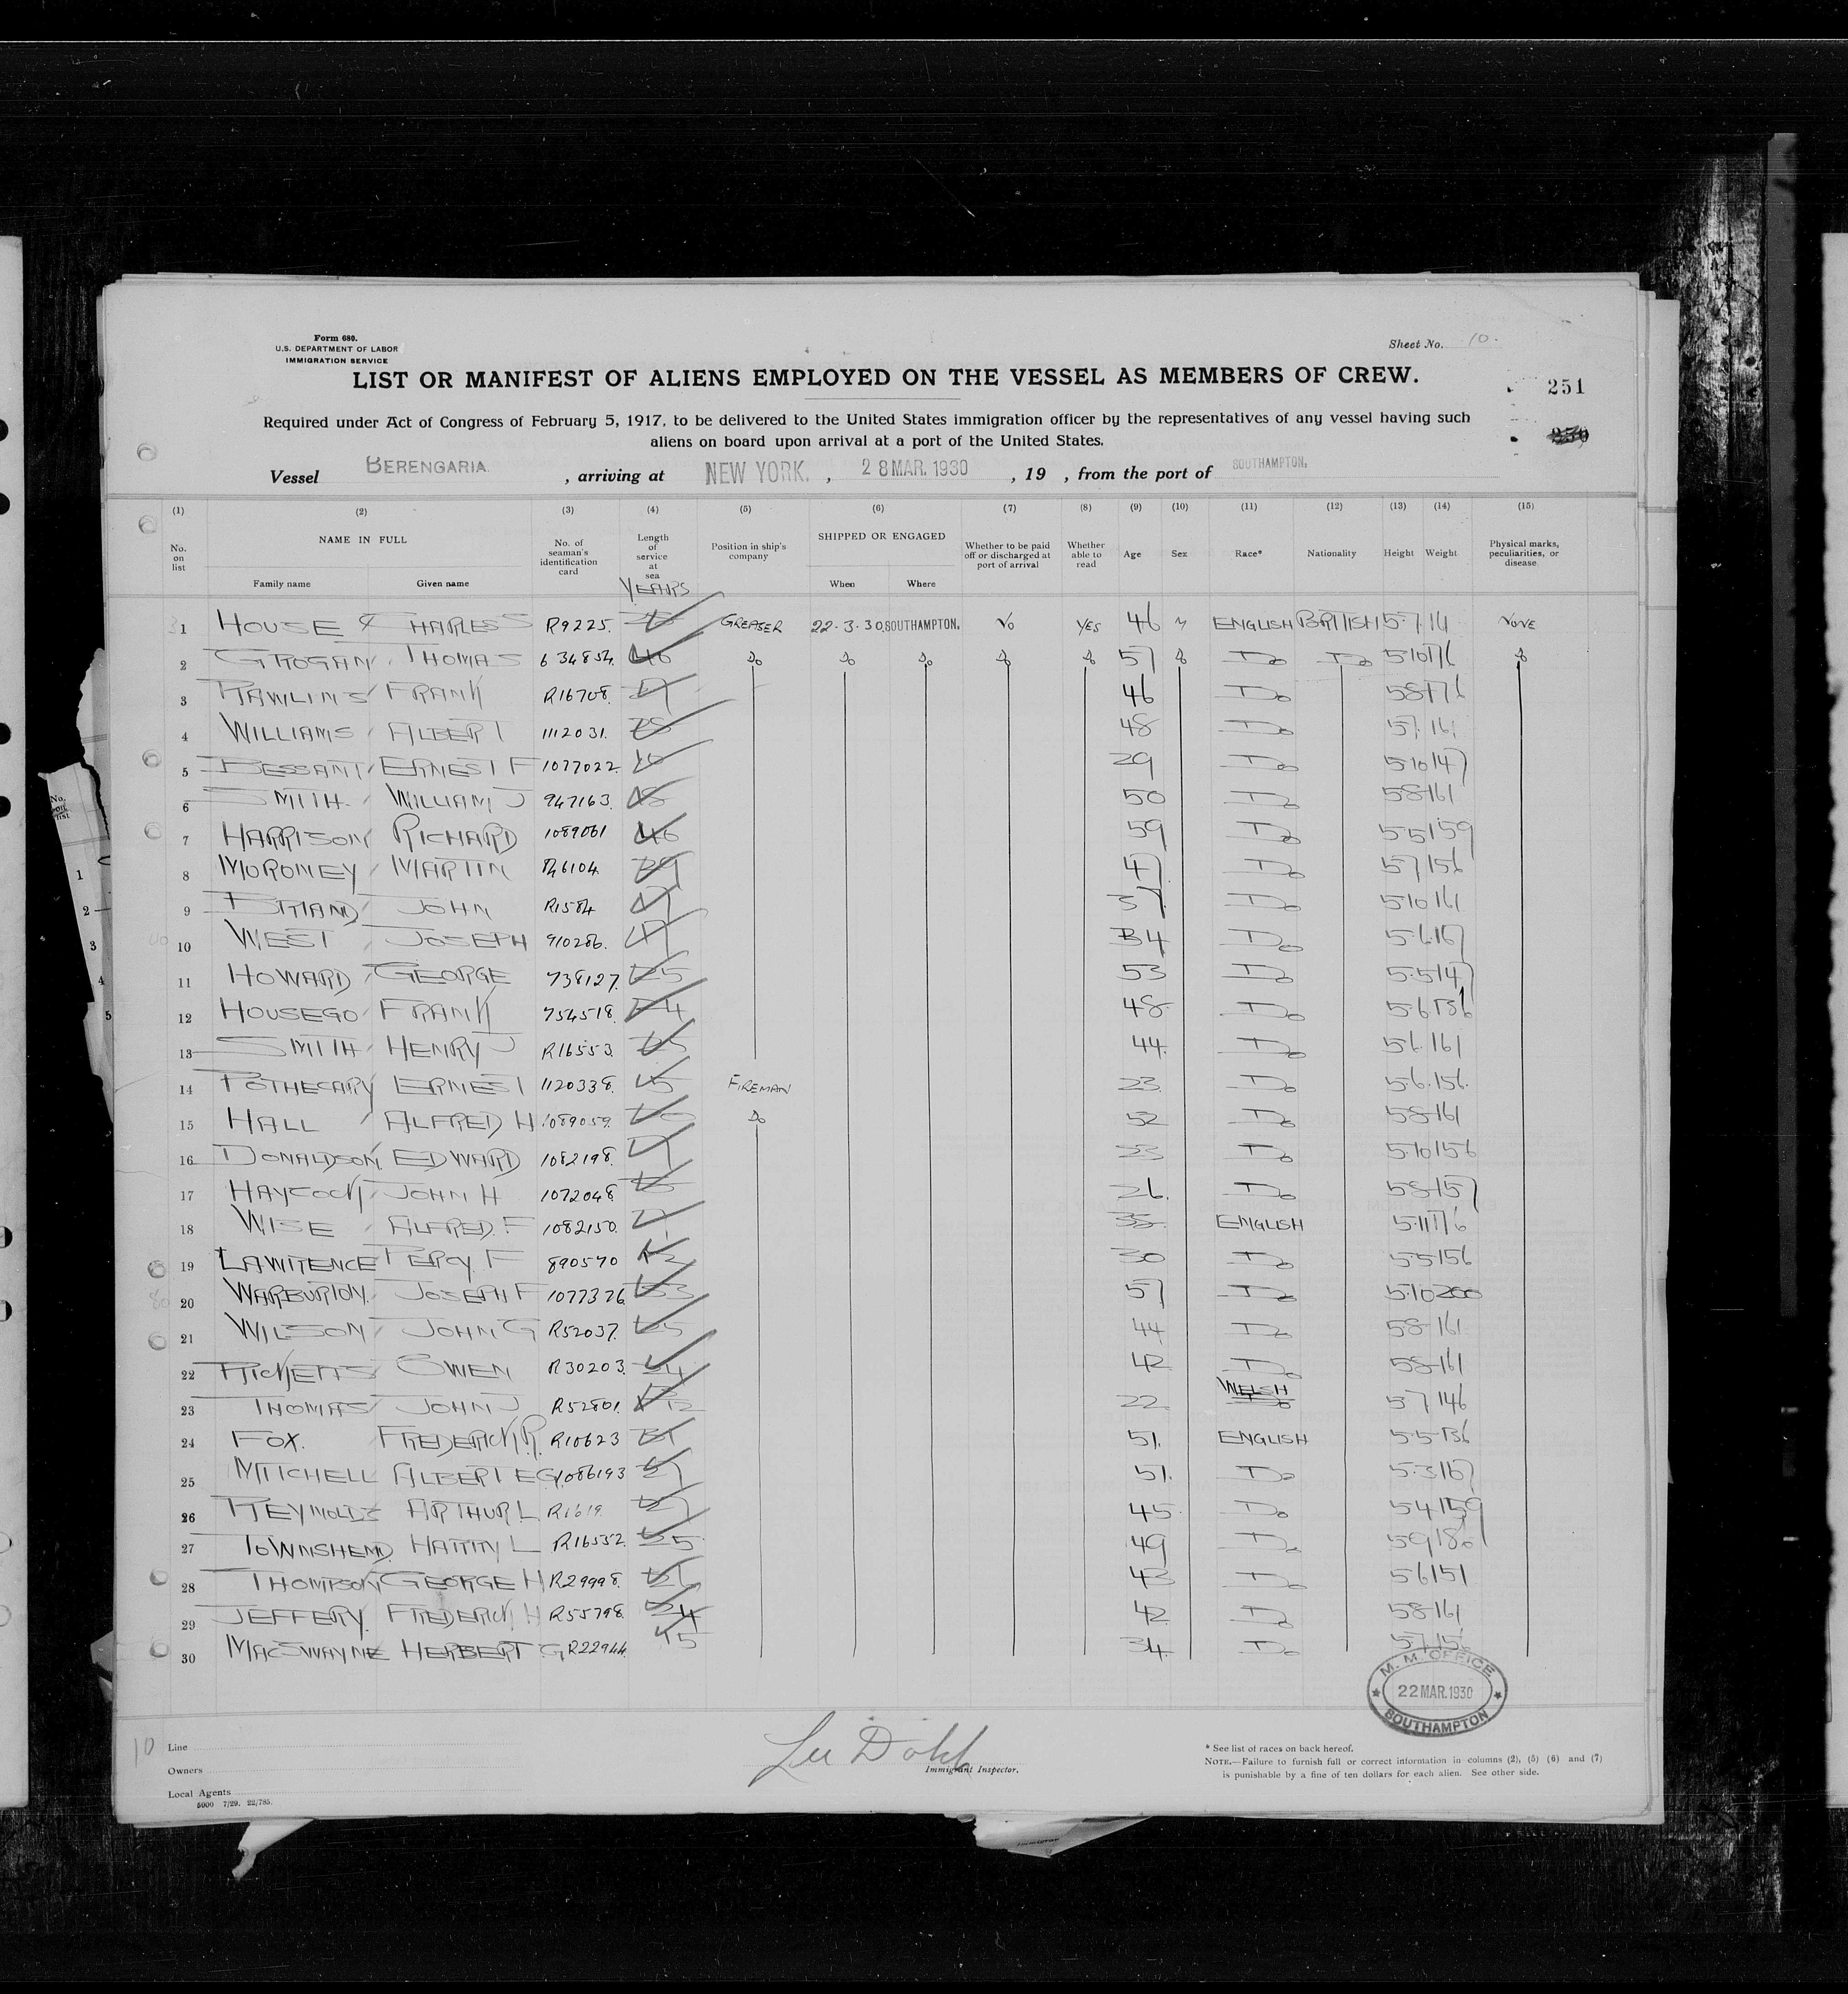 Form 680.
U.S. DEPARTMENT OF LABOR
IMMIGRATION SERVICE
Sheet No. 10.
LIST OR MANIFEST OF ALIENS EMPLOYED ON THE VESSEL AS MEMBERS OF CREW.
251
250
Required under Act of Congress of February 5, 1917, to be delivered to the United States immigration officer by the representatives of any vessel having such
aliens on board upon arrival at a port of the United States.
Vessel BERENGARIA , arriving at NEW YORK. , 28 MAR. 1930 , 19 , from the port of SOUTHAMPTON.
(1) (2) (3) (4) (5) (6) (7) (8) (9) (10) (11) (12) (13) (14) (15)
No. on list NAME IN FULL Family name Given name No. of seaman's identification card Length of service at sea YEARS Position in ship's company SHIPPED OR ENGAGED When Where Whether to be paid off or discharged at port of arrival Whether able to read Age Sex Race* Nationality Height Weight Physical marks, peculiarities, or disease
1 HOUSE CHARLES S R9225. GREASER 22.3.30 SOUTHAMPTON. NO YES 46 M ENGLISH BRITISH 5.7 NONE
2 GROGAN THOMAS 634854. 40 Do Do Do Do Do 57 Do Do Do 5.10 176 Do
3 RAWLINS FRANK R16708. 46 Do 5.8 176
4 WILLIAMS ALBERT 1112031. 28 48 Do 5.7 161
5 BESSANT ERNEST F 1077022. 10 29 Do 5.10 147
6 SMITH WILLIAM J 947163. 18 50 Do 5.8 161
7 HARRISON RICHARD 1089061 46 59 Do 5.5 159
8 MORONEY MARTIN R46104. 29 47 Do 5.7 156
9 BRIAND JOHN R1584 37 Do 5.10 161
10 WEST JOSEPH 910286. 34 Do 5.6 167
11 HOWARD GEORGE 738127. 25 53 Do 5.5 147
12 HOUSEGO FRANK 754518. 24 48 Do 5.6 156
13 SMITH HENRY J R16553. 25 44. Do 5.6 161
14 POTHECARY ERNEST 1120338. 5 FIREMAN 23. Do 5.6 156.
15 HALL ALFRED H 1089059. Do 52 Do 5.8 161
16 DONALDSON EDWARD 1082198. 23 Do 5.10 156
17 HAYCOCK JOHN H 1072048 26. Do 5.8 157
18 WISE ALFRED. F 1082150. 35 ENGLISH 5.11 176
19 LAWRENCE PERCY F 890570 12 30 Do 5.5 156
20 WARBURTON JOSEPH F 1077376 33 57 Do 5.10 200
21 WILSON JOHN G R52037. 25 44 Do 5.8 161
22 RICKETTS OWEN R30203. 24 42 Do 5.8 161
23 THOMAS JOHN J R52801. 22 WELSH 5.7 146
24 FOX. FREDERICK R. R10623 51. ENGLISH 5.5 156
25 MITCHELL ALBERT E G 1086193 51. Do 5.3 167
26 REYNOLDS ARTHUR L R1619. 45 Do 5.4 159
27 TOWNSHEND HARRY L R16552. 25 49 Do 5.9 186
28 THOMPSON GEORGE H R29998. 21 43 Do 5.6 151
29 JEFFERY. FREDERICK H R55798. 24 42 Do 5.8 161
30 MACSWAYNE HERBERT G R22944. 15 34. Do 5.7 156
M. M. OFFICE
22 MAR. 1930
SOUTHAMPTON
10
Line
Owners
Local Agents
5000 7/29. 22/785.
Immigrant Inspector.
* See list of races on back hereof.
NOTE.—Failure to furnish full or correct information in columns (2), (5) (6) and (7)
is punishable by a fine of ten dollars for each alien. See other side.